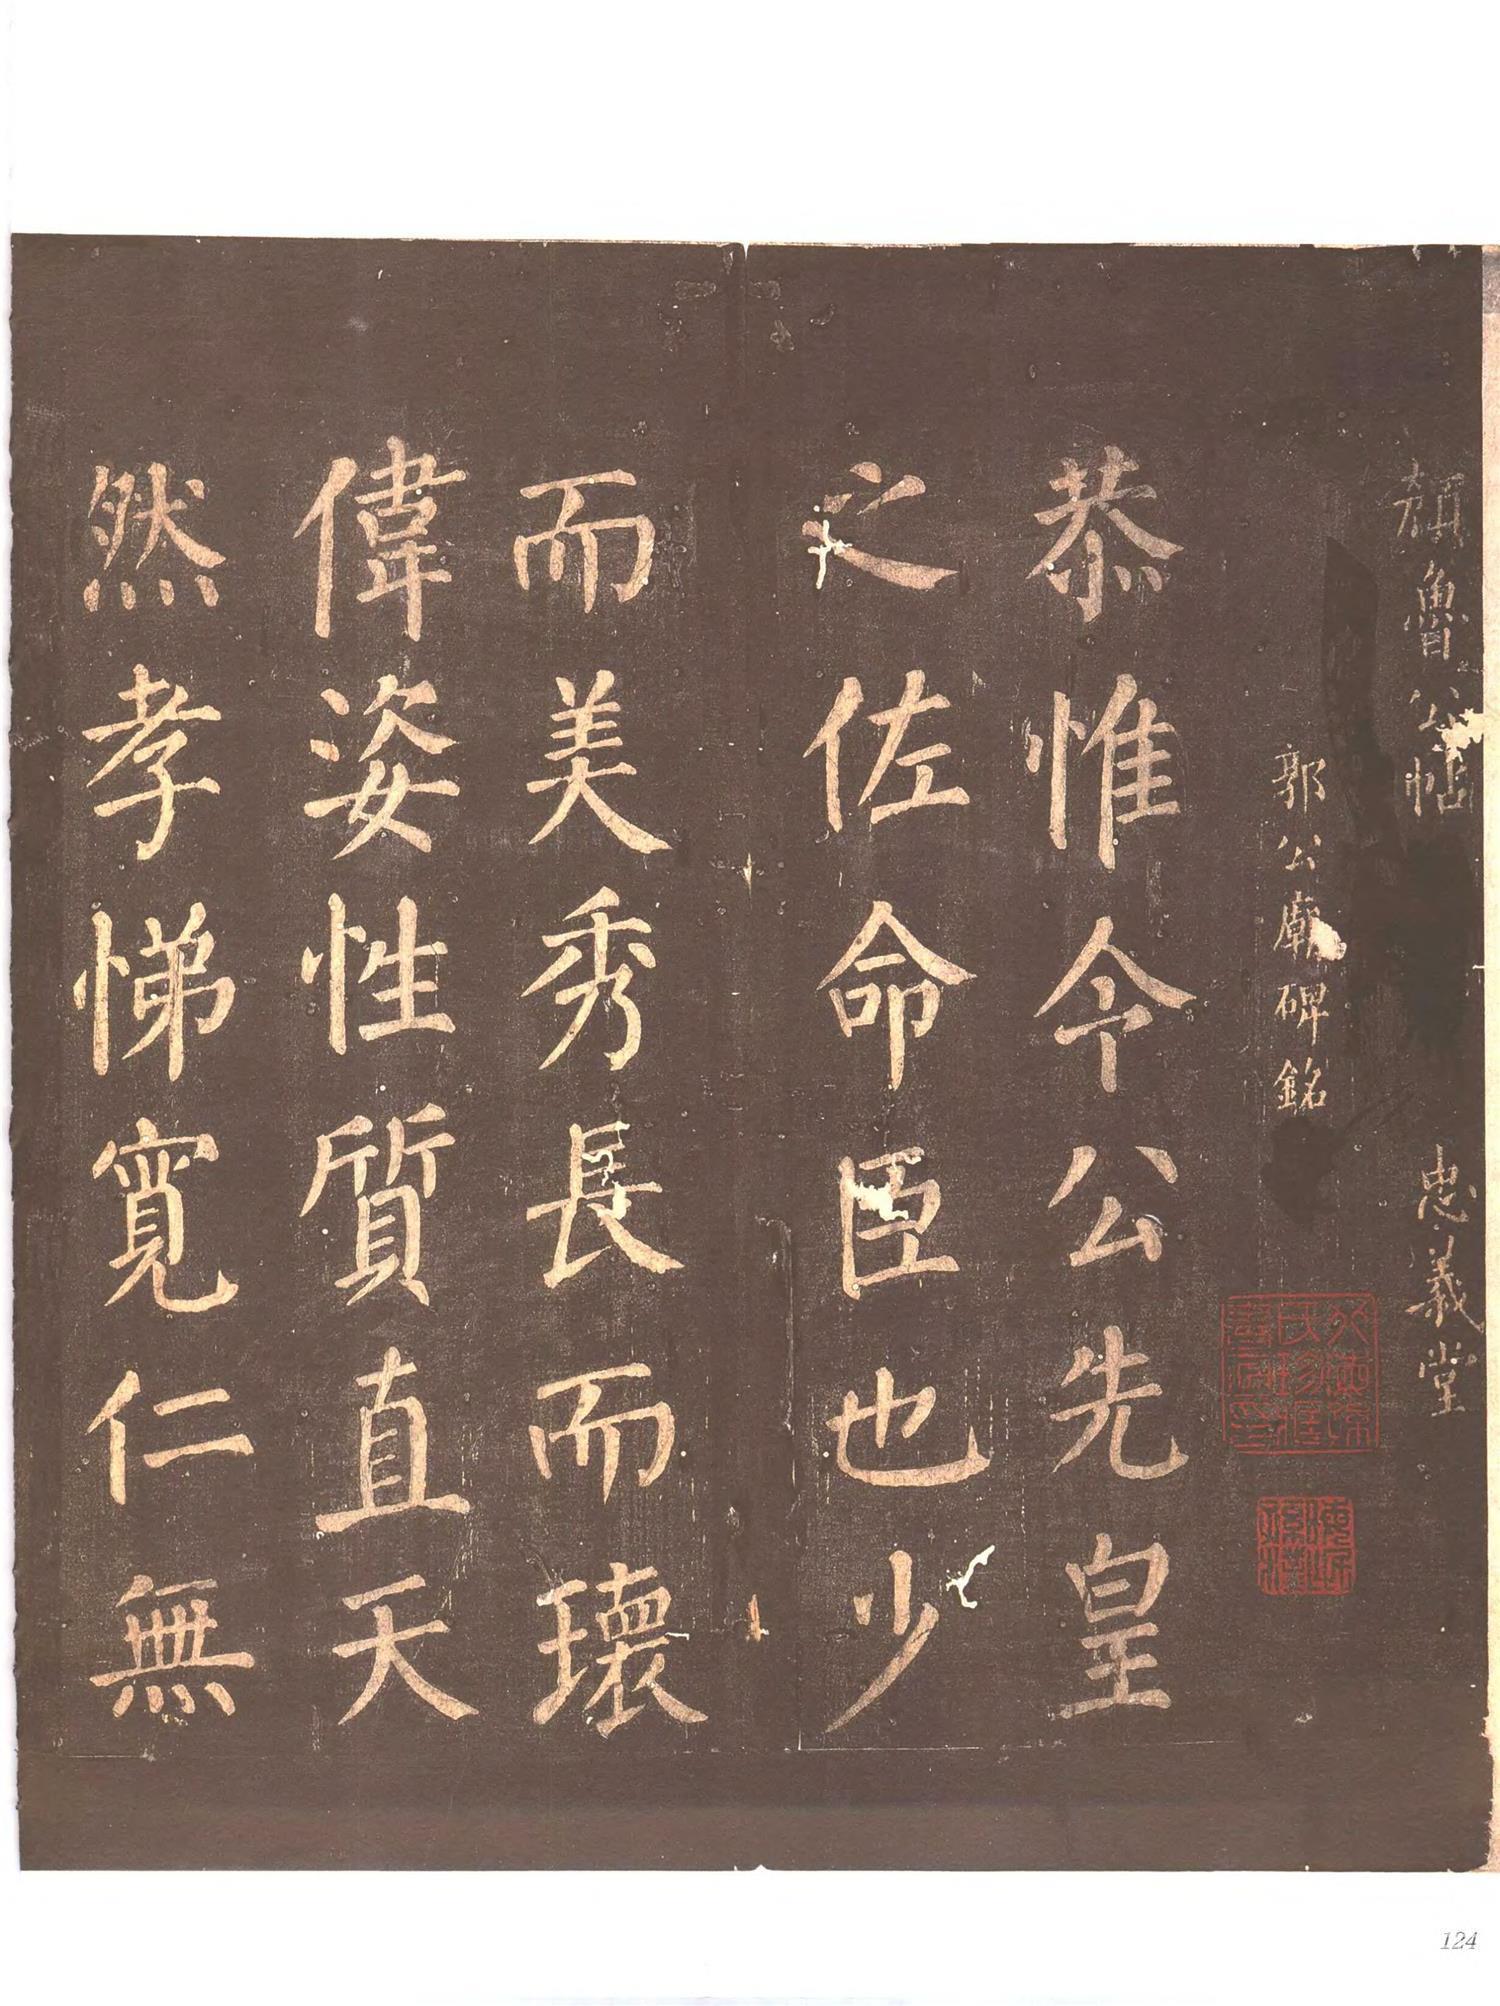 顏魯公帖 忠義堂
郭公廟碑銘
恭惟令公先皇
之佐命臣也少
而美秀長而瓌
偉姿性質直天
然孝悌寬仁無
124